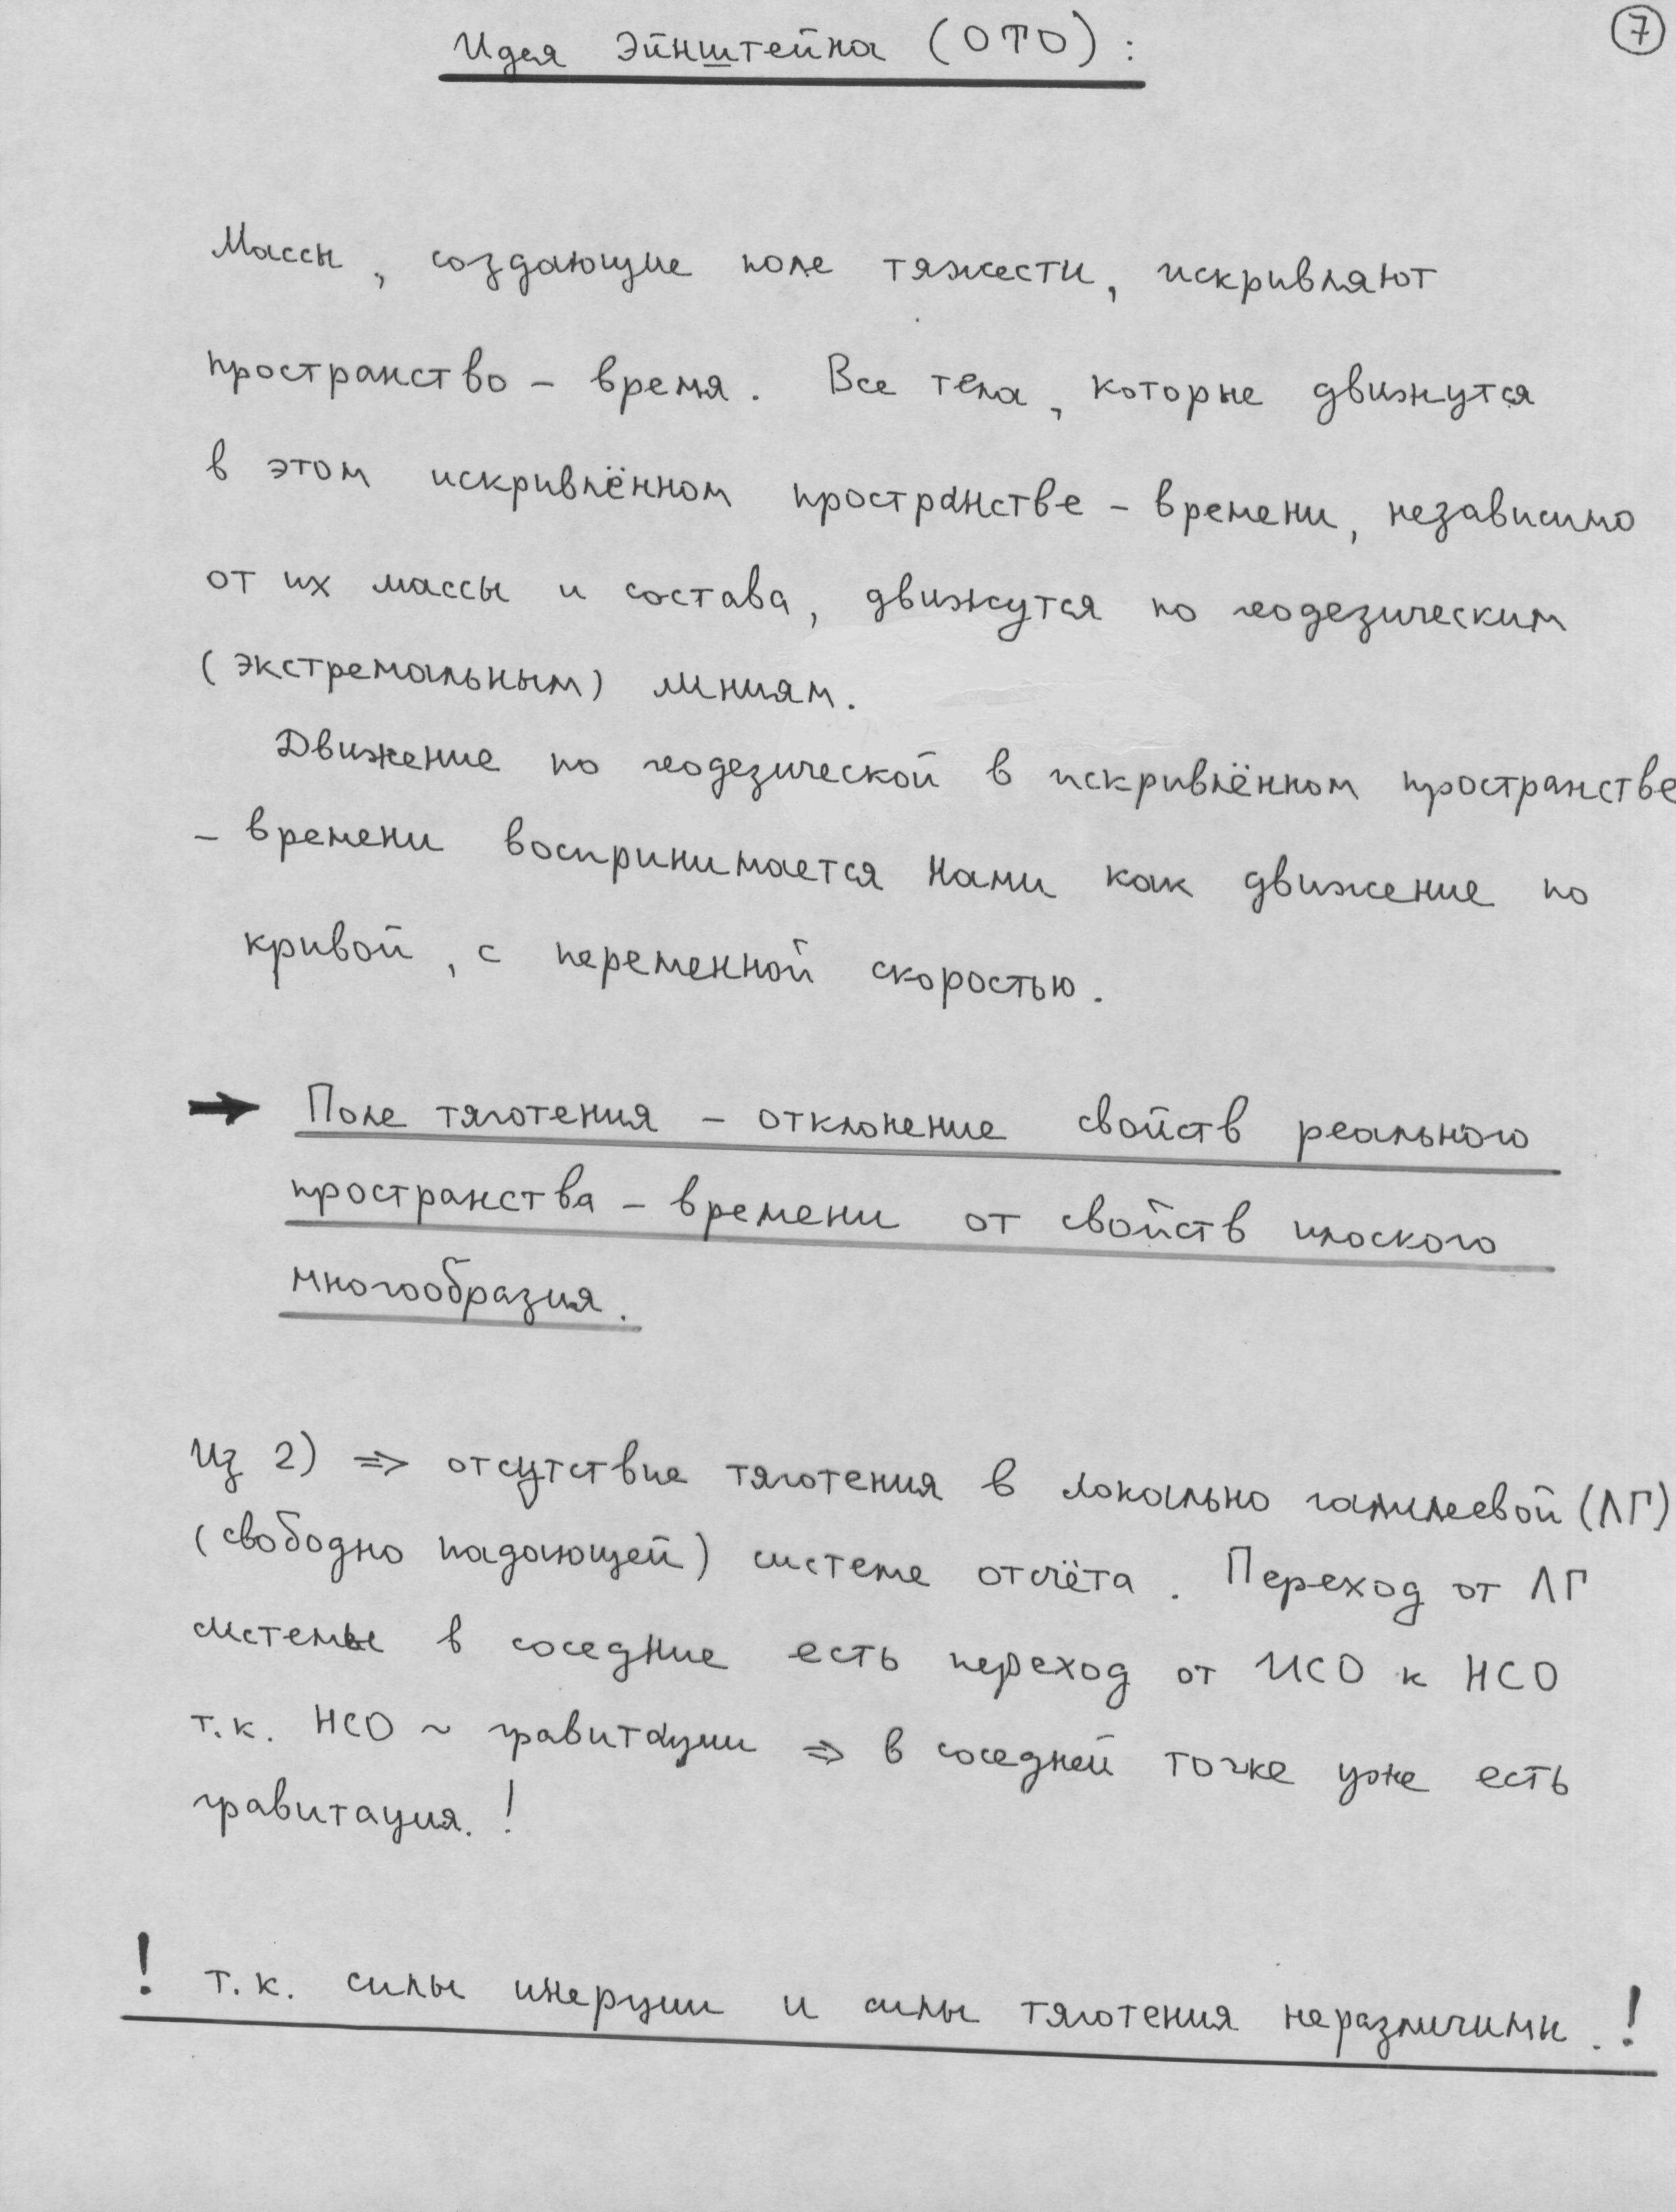 Идея Эйнштейна (ОТО) :
7
Массы, создающие поле тяжести, искривляют
пространство - время. Все тела, которые движутся
в этом искривлённом пространстве - времени, независимо
от их массы и состава, движутся по геодезическим
(экстремальным) линиям.
Движение по геодезической в искривлённом пространстве
- времени воспринимается нами как движение по
кривой, с переменной скоростью.
→ Поле тяготения - отклонение свойств реального
пространства - времени от свойств плоского
многообразия.
Из 2) => отсутствие тяготения в локально галилеевой (ЛГ)
(свободно падающей) системе отсчёта. Переход от ЛГ
системы в соседние есть переход от ИСО к НСО
т.к. НСО ~ гравитации => в соседней точке уже есть
гравитация. !
! т.к. силы инерции и силы тяготения неразличимы. !